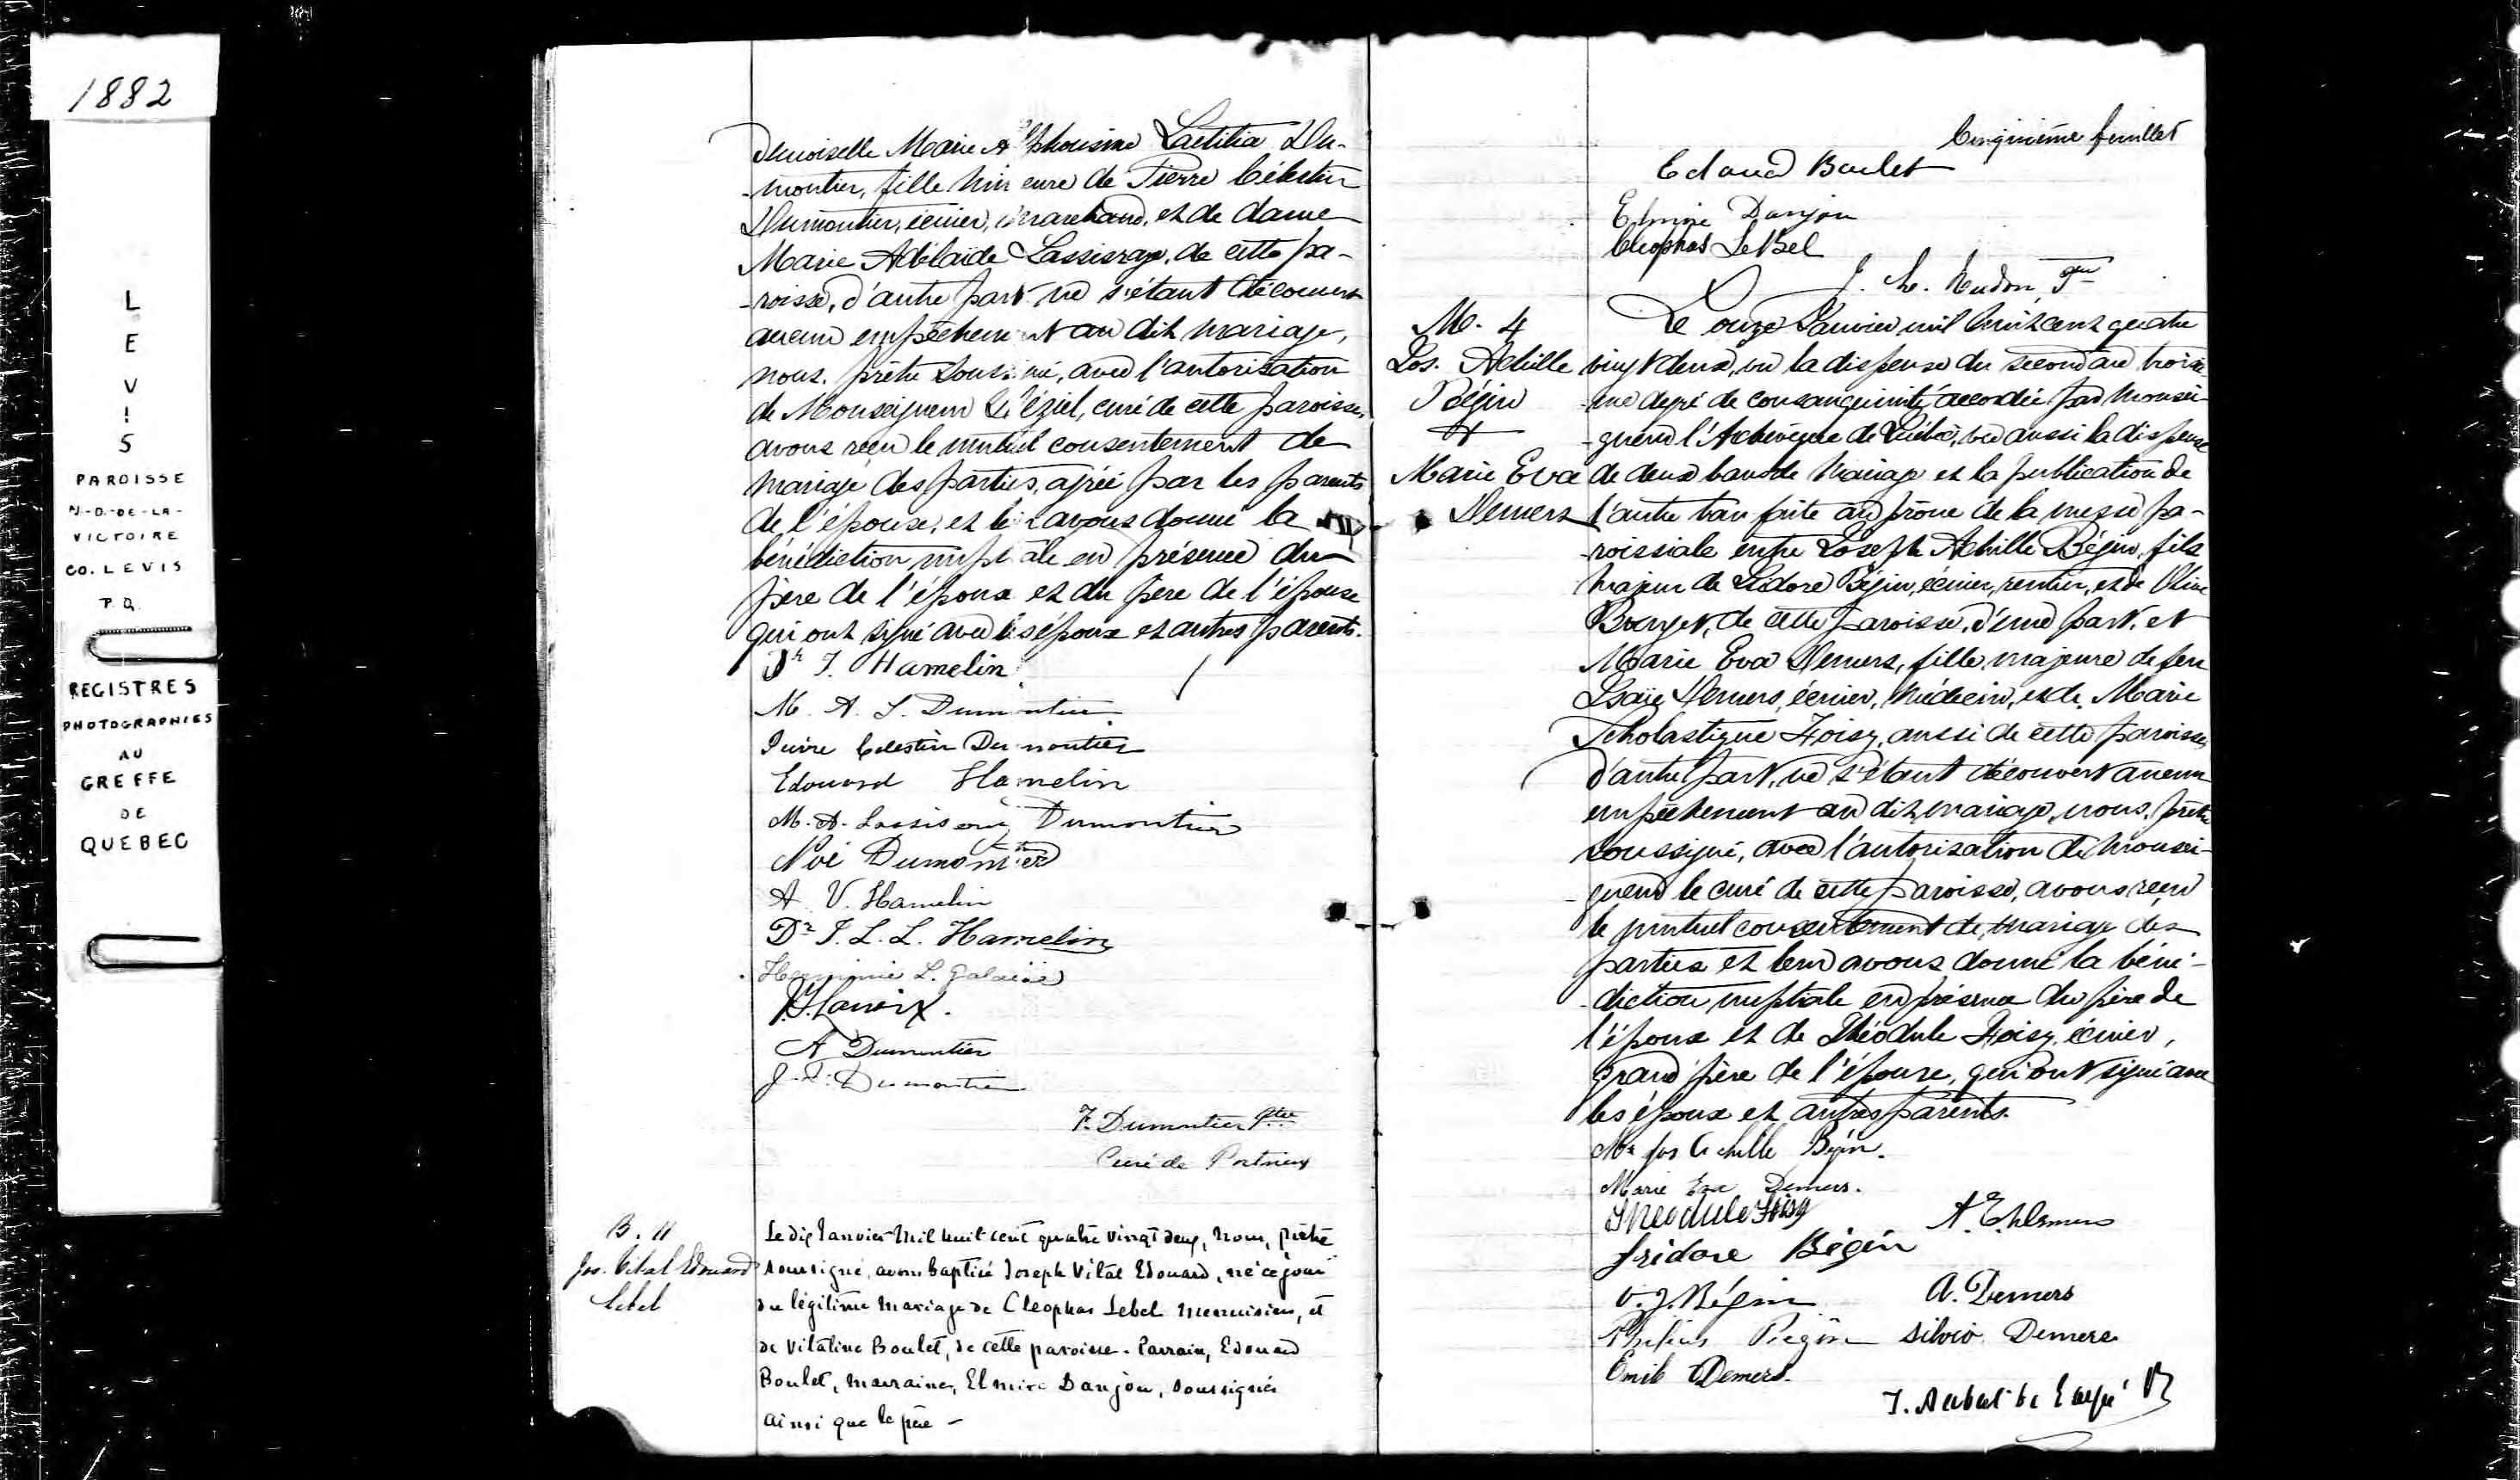 1882
L
E
V
I
S
PAROISSE
N.-D.-DE-LA-
VICTOIRE
CO. LEVIS
P.Q.
REGISTRES
PHOTOGRAPHIES
AU
GREFFE
DE
QUEBEC
demoiselle Marie Alphonsine Laetitia Du-
-montier, fille mineure de Pierre Célestin
Dumontier, écuier, marchand, et de dame
Marie Adélaïde Lassiseraye, de cette pa-
-roisse, d'autre part. ne s'étant découvert
aucun empêchement au dit mariage,
nous, prêtre soussigné, avec l'autorisation
de Monseigneur Déziel, curé de cette paroisse,
avons reçu le mutuel consentement de
mariage des parties, agréé par les parents
de l'épouse, et leur avons donné la
bénédiction nuptiale en présence du
père de l'époux et du père de l'épouse
qui ont signé avec les époux et autres parents.
Dr J. Hamelin
M. A. L. Dumontier
Pierre Celestin Dumontier
Edouard Hamelin
M. A. Lassiseraye Dumontier
Noé Dumontier
A. V. Hamelin
Dr J. L. L. Hamelin
L.
Lanoix.
A Dumontier
J. Dumontier
F. Dumontier Ptre
Curé de
B. 11
Jos. Vital Edouard
Lebel
Le dix Janvier mil huit cent quatre vingt deux, nous, prêtre
soussigné, avons baptisé Joseph Vital Edouard, né ce jour
du légitime mariage de Cleophas Lebel menuisier, et
de Vitaline Boulet, de cette paroisse. Parrain, Edouard
Boulet, marraine, Elmire Danjou, soussignés
ainsi que le père -
Cinquième feuillet
Edouard Boulet
Elmire Danjou
Cleophas LeBel
Ptre
M. 4
Jos. Achille
Bégin
&
Marie Eva
Demers
Le onze Janvier mil huit cent quatre
vingt deux, vu la dispense du second au troisiè-
-me degré de consanguinité accordée par Monsei-
-gneur l'Archevêque de Québec, vu aussi la dispense
de deux bans de mariage et la publication de
l'autre ban faite au prône de la messe pa-
-roissiale entre Joseph Achille Bégin, fils
majeur de Isidore Bégin, écuier, rentier, et de Olive
Bourget, de cette paroisse, d'une part, et
Marie Eva Demers, fille majeure de feu
Isaïe Demers, écuier, médecin, et de Marie
Scholastique Foisy, aussi de cette paroisse,
d'autre part, ne s'étant découvert aucun
empêchement au dit mariage, nous, prêtre
soussigné, avec l'autorisation de Monsei-
-gneur le curé de cette paroisse, avons reçu
le mutuel consentement de mariage des
parties et leur avons donné la béné-
-diction nuptiale en présence du père de
l'époux et de Théodule Foisy, écuier,
grand père de l'épouse, qui ont signé avec
les époux et autres parents.
Mr Jos Achille Bégin.
Marie Eva Demers.
Theodule Foisy
Isidore Bégin
A. E. Demers
V. J. Bégin
A. Demers
Bégin Silvio Demers
Emile Demers.